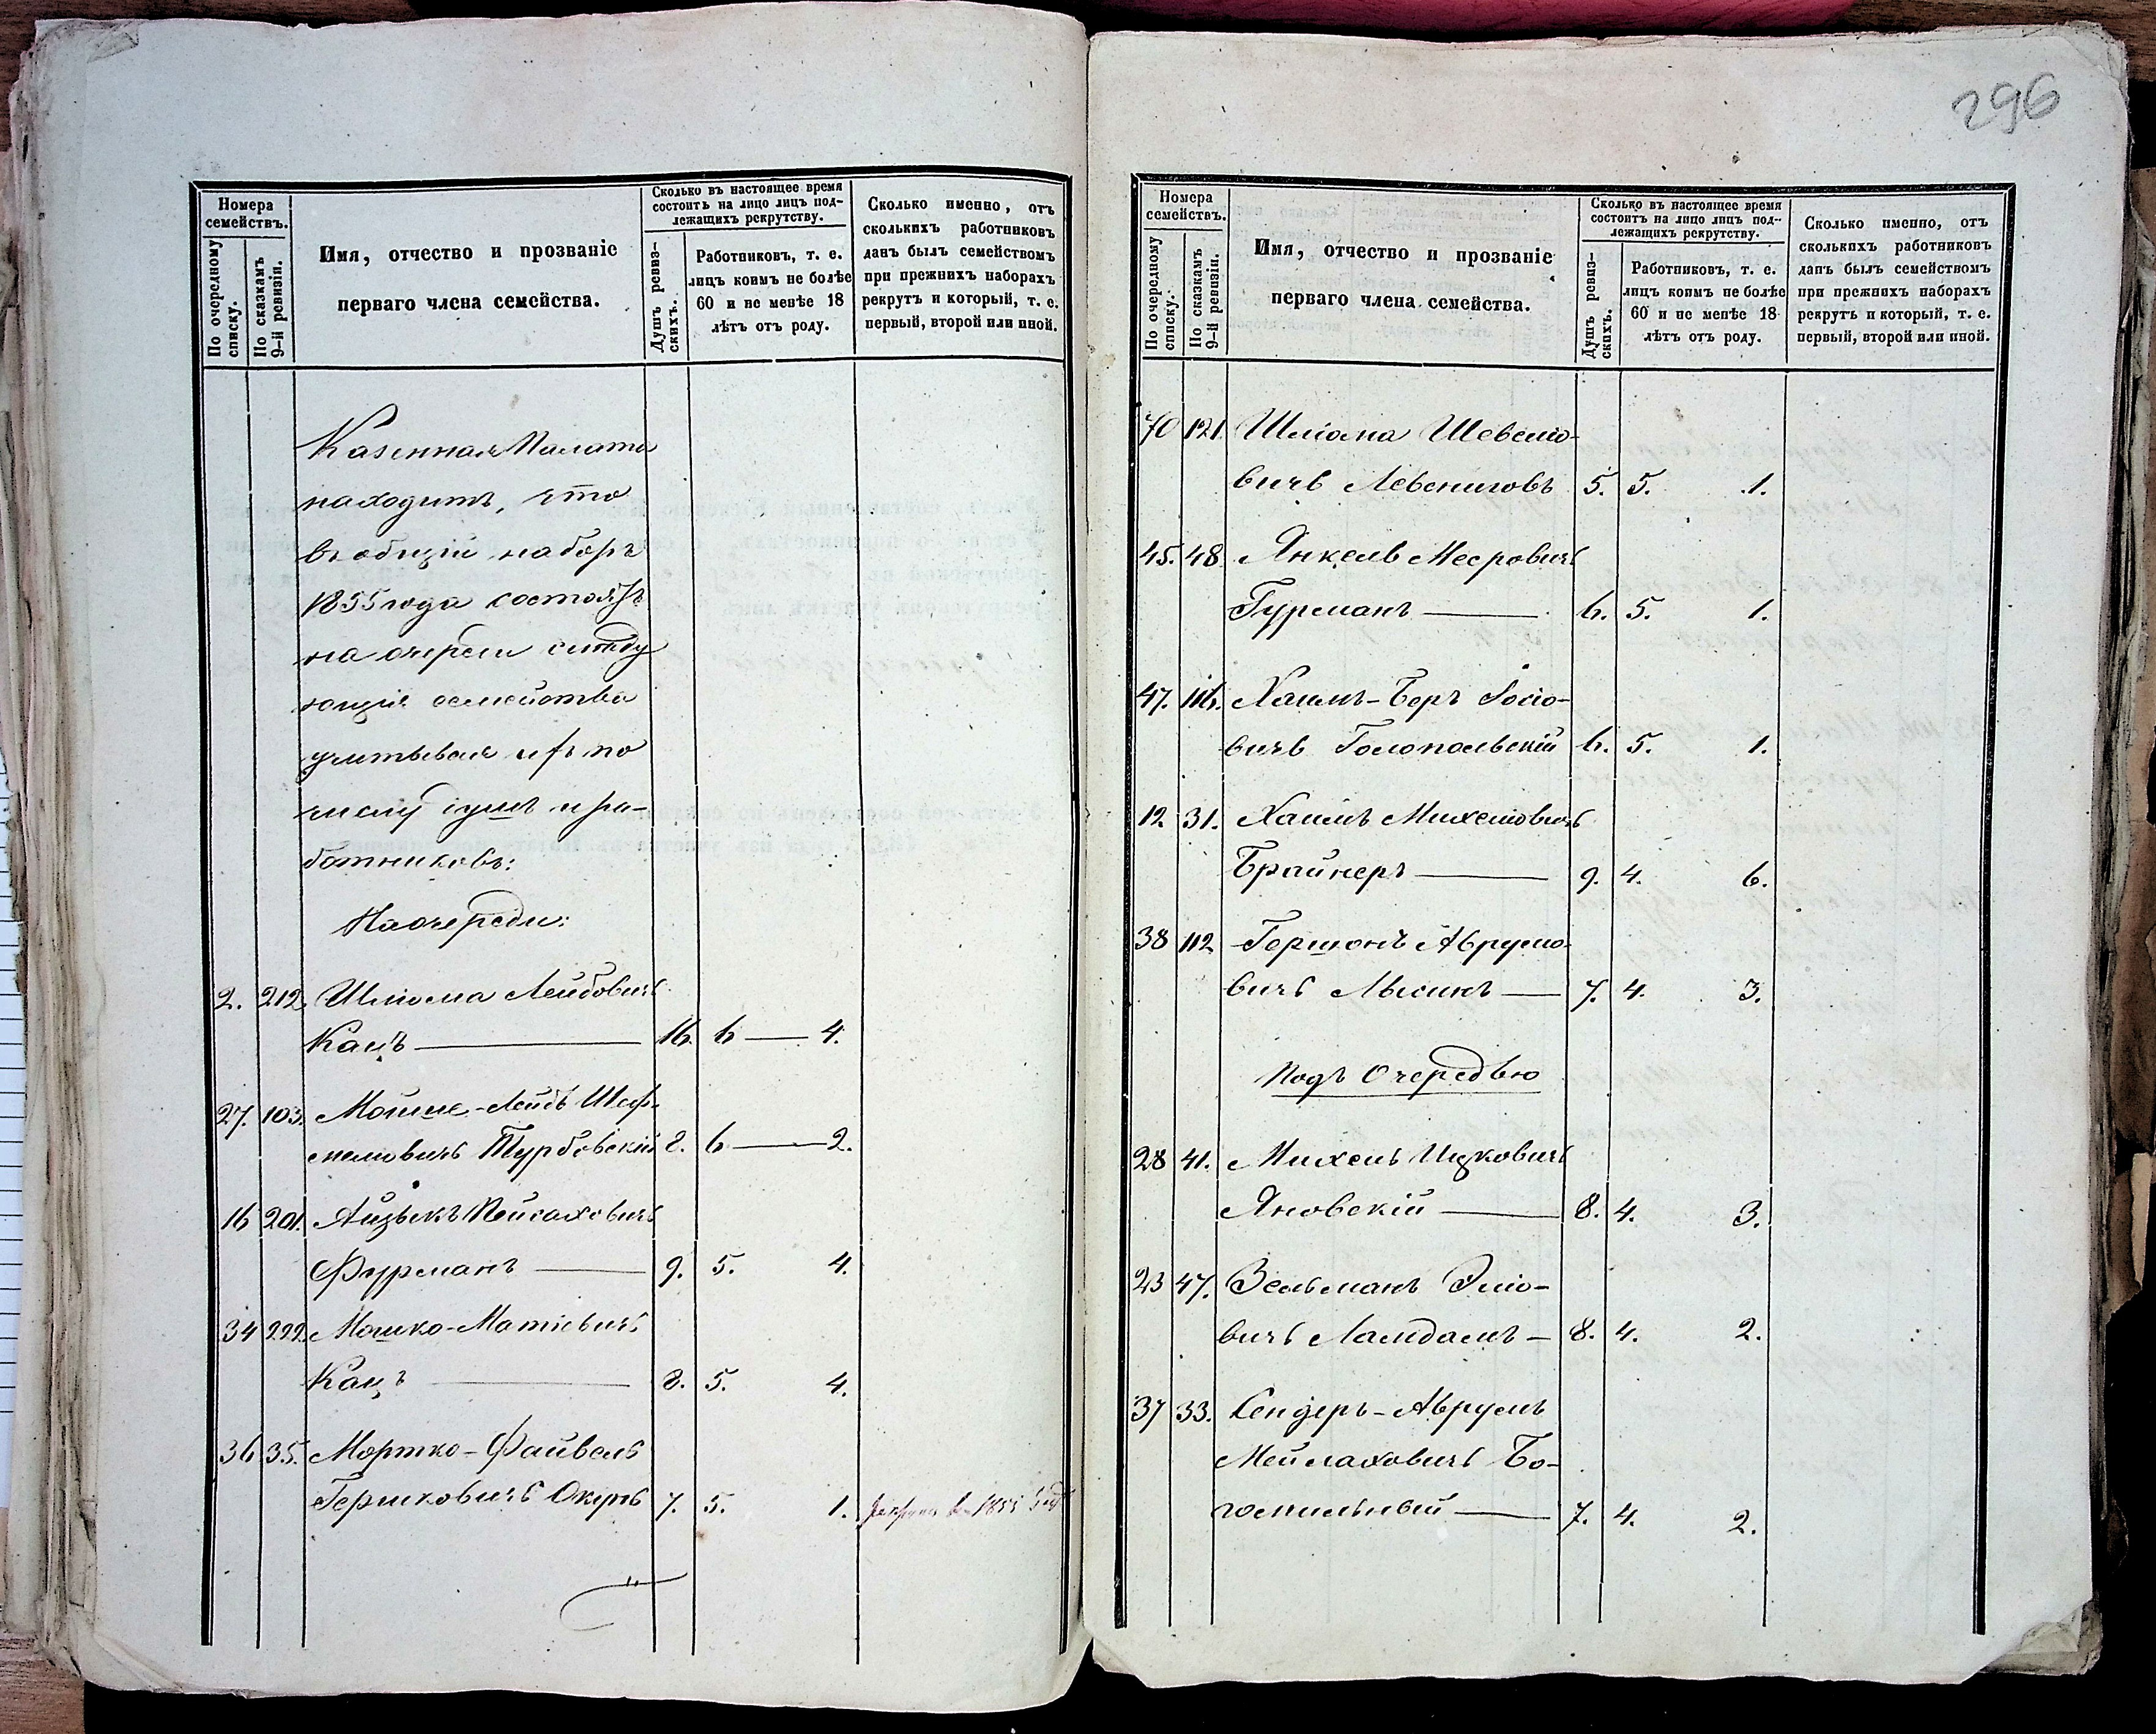 296
Номера
семействъ.
По очередному
списку.
По сказкамъ
9-й ревизіи.
Имя, отчество и прозваніе
перваго члена семейства.
Сколько въ настоящее время
состоитъ на лицо лицъ под-
лежащихъ рекрутству.
Душъ ревиз-
скихъ.
Работниковъ, т. е.
лицъ коимъ не болѣе
60 и не менѣе 18
лѣтъ отъ роду.
Сколько именно, отъ
сколькихъ работниковъ
данъ былъ семействомъ
при прежнихъ наборахъ
рекрутъ и который, т. е.
первый, второй или иной.
Казенная Палата
находитъ, что
въ общій наборъ
1855 года состоятъ
на очереди слѣду
ющія семейства
учитывая ихъ по
числу душъ и ра-
ботниковъ:
На очереди:
2. 212. Шлiома Лейбовичъ
Кацъ — 16. 6 — 4.
27. 103. Мошко-Лейбъ
Турбовскій 8. 6 — 2.
16 201. Айзыкъ Пейсаховичъ
Фурманъ — 9. 5. 4.
34 222. Мошко-Матіевичъ
Кацъ — 8. 5. 4.
36 35. Мортко-Файвель
Гершковичъ Окунь 7. 5. 1.
Номера
семействъ.
По очередному
списку.
По сказкамъ
9-й ревизіи.
Имя, отчество и прозваніе
перваго члена семейства.
Сколько въ настоящее время
состоитъ на лицо лицъ под-
лежащихъ рекрутству.
Душъ ревиз-
скихъ.
Работниковъ, т. е.
лицъ коимъ не болѣе
60 и не менѣе 18
лѣтъ отъ роду.
Сколько именно, отъ
сколькихъ работниковъ
данъ былъ семействомъ
при прежнихъ наборахъ
рекрутъ и который, т. е.
первый, второй или иной.
70 121. Шлiома Шевелiо-
вичъ 5. 5. 1.
45. 48. Янкель Меeровичъ
Гурманъ — 6. 5. 1.
47. 116. Хаимъ-Беръ Iосiо-
вичъ Голопольскій 6. 5. 1.
12 31. Хаимъ Михелiовичъ
Брайнеръ — 9. 4. 6.
38 112 Гершонъ Аврумо-
вичъ Лысикъ — 7. 4. 3.
Подъ Очередью
28 41. Михель Ицковичъ
Яновскій — 8. 4. 3.
23 47. Зельманъ Элiо-
вичъ Ламдамъ — 8. 4. 2.
37 33. Сендеръ-Аврумъ
Мейлаховичъ Бо-
гомильный — 7. 4. 2.